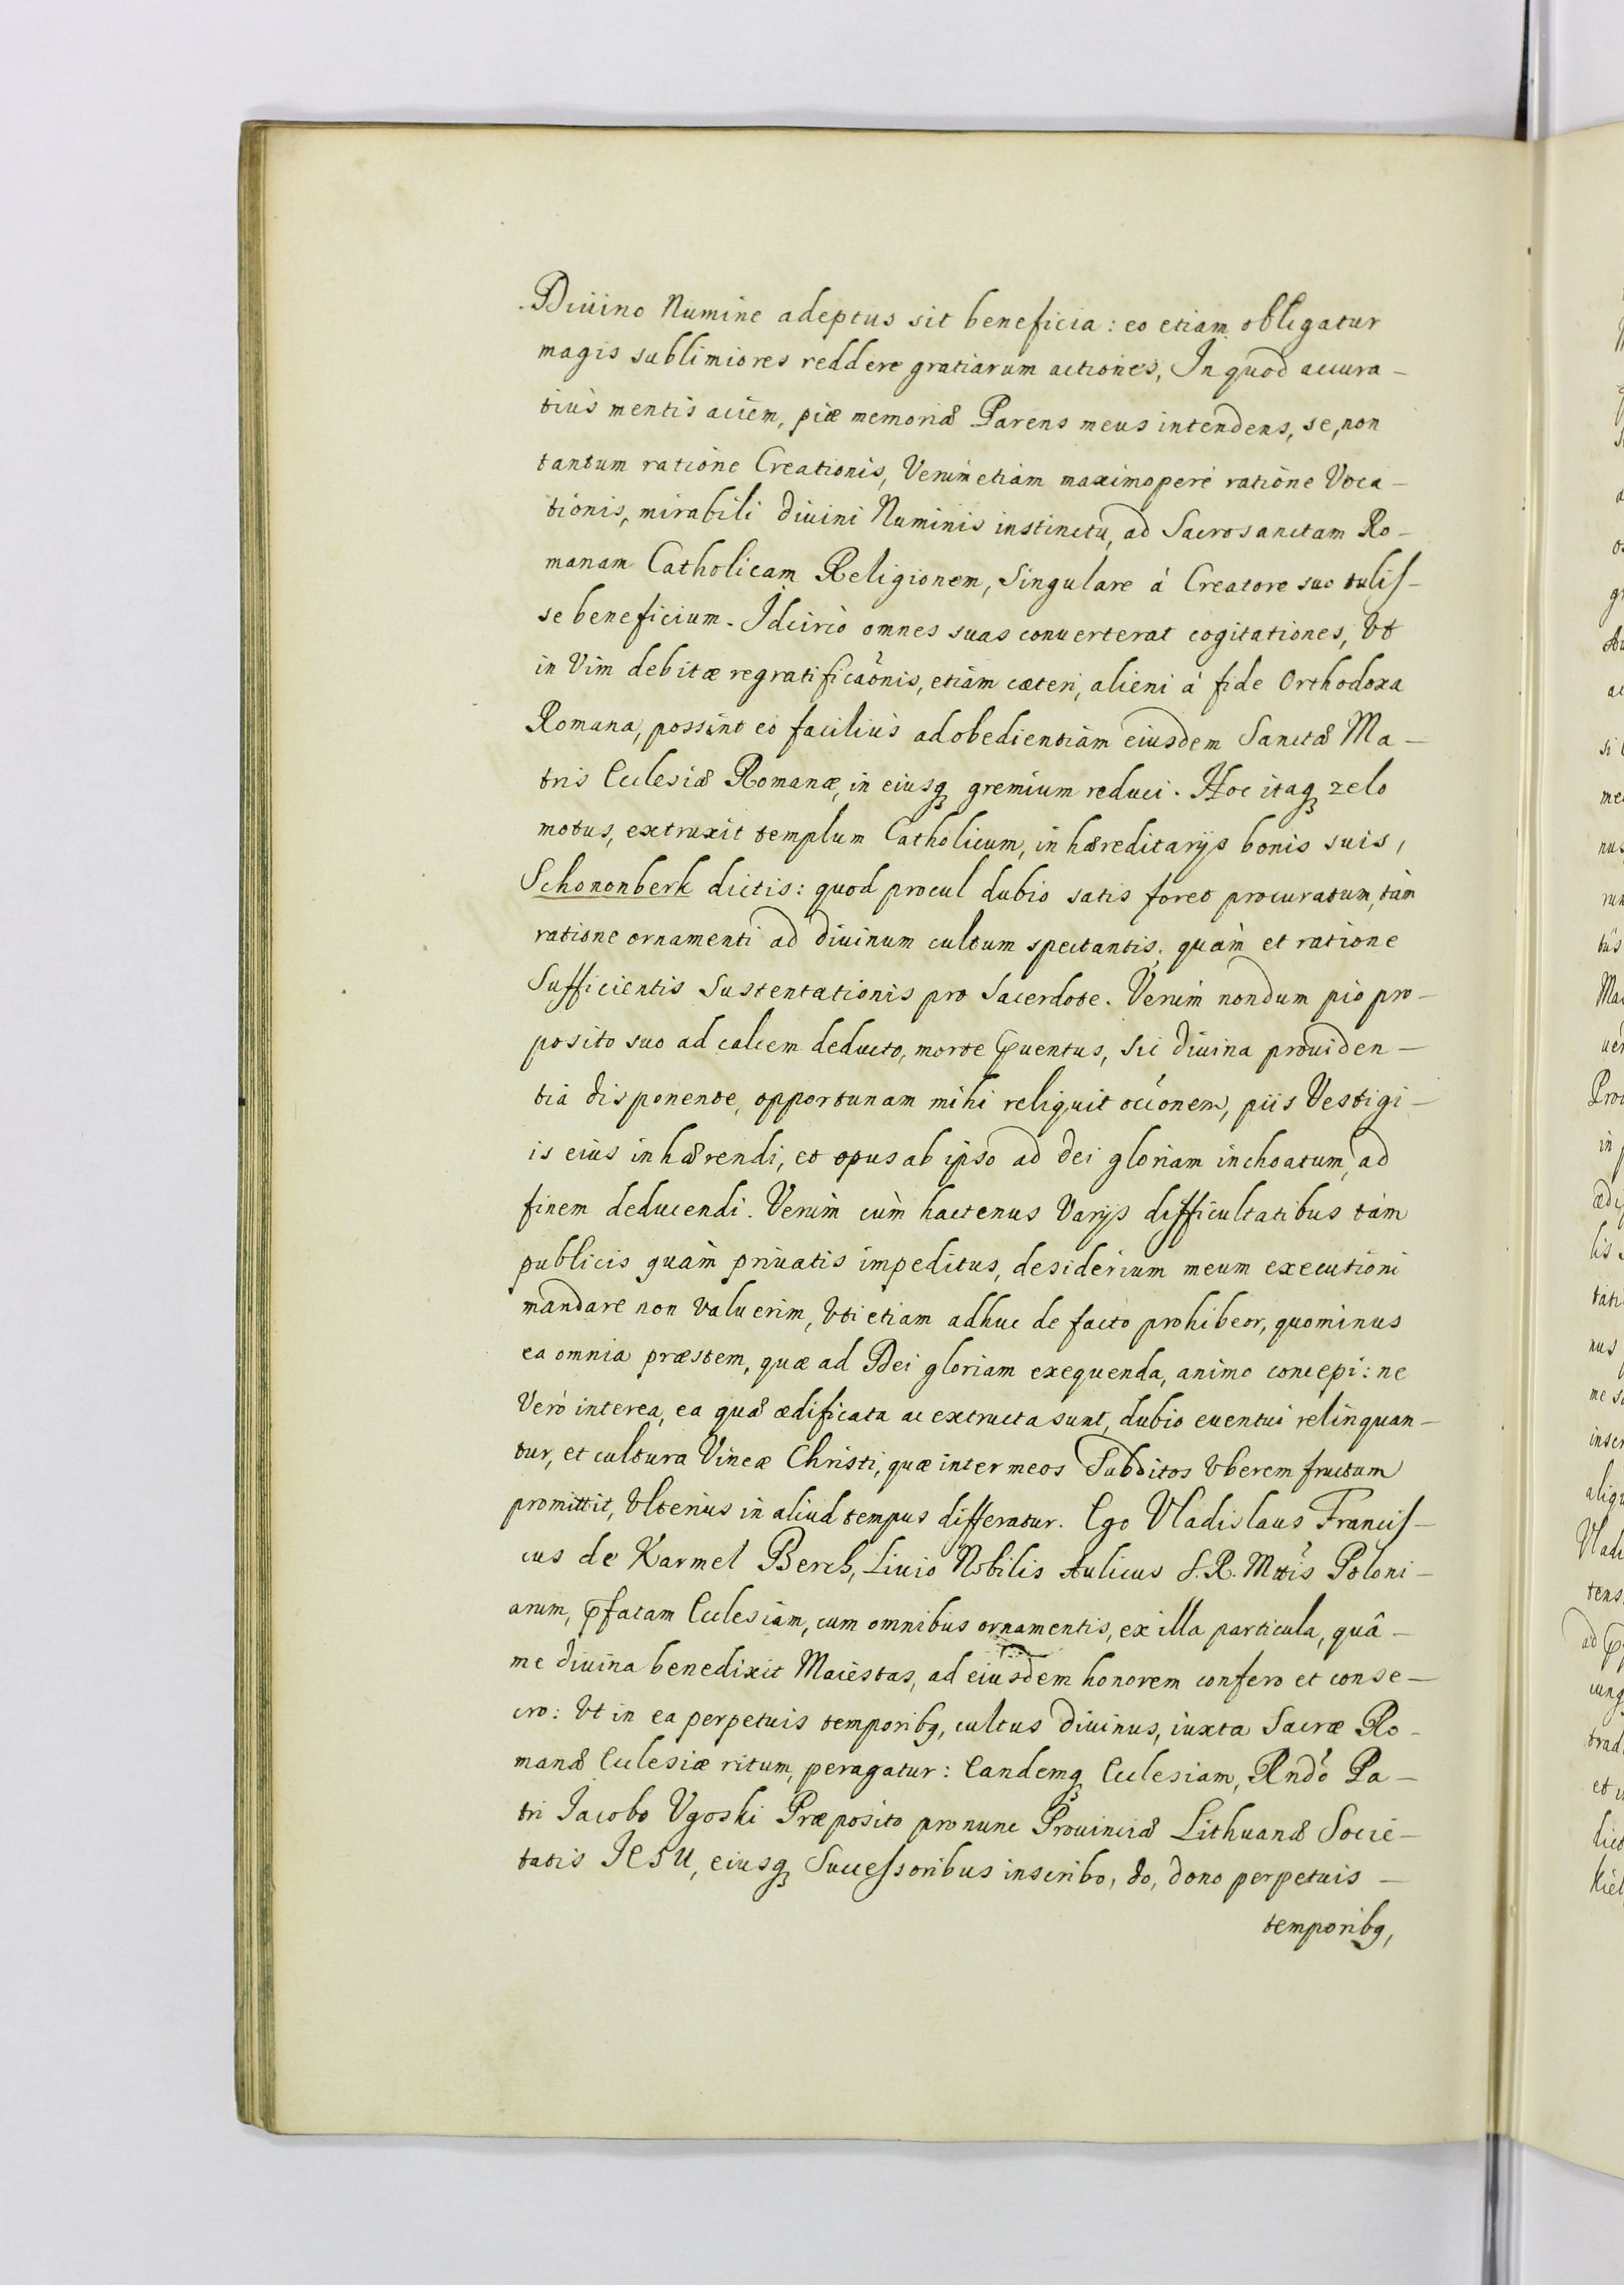 Diuino Numine adeptus sit beneficia: eo etiam obligatur
magis sublimiores reddere gratiarum actiones, In quod accura-
tiùs mentis aciem, piæ memoriæ Parens meus intendens, se, non
tantum ratione Creationis, Verùm etiam maximopere ratione Voca-
tionis, mirabili diuini Numinis instinctu, ad Sacrosanctam Ro-
manam Catholicam Religionem, Singulare á Creatore suo tulis-
se beneficium. Idcircò omnes suas conuerterat cogitationes, Vt
in Vim debitæ regratificaõnis, etiam cæteri, alieni á fide Orthodoxa
Romana, possint eò faciliùs ad obedientiam eiusdem Sanctæ Ma-
tris Ecclesiæ Romanæ, in eiusq; gremium reduci. Hoc itaq; zelo
motus, extruxit templum Catholicum, in hæreditarijs bonis suis,
Schononberk dictis: quod procul dubio satis foret procuratum, tàm
ratione ornamenti ad diuinum cultum spectantis; quàm et ratione
Sufficientis Sustentationis pro Sacerdote. Verùm nondum pio pro-
posito suo ad calcem deducto, morte p̱uentus, Sic diuina prouiden-
tia disponente, opportunam mihi reliquit occõnem, piis Vestigi-
is eius inhærendi, et opus ab ipso ad Dei gloriam inchoatum, ad
finem deducendi. Verùm cùm hactenus Varijs difficultatibus tàm
publicis quàm priuatis impeditus, desiderium meum executioni
mandare non Valuerim, Vti etiam adhuc de facto prohibeor, quominus
ea omnia præstem, quæ ad Dei gloriam exequenda, animo concepi: ne
Verò interea, ea quæ ædificata ac extructa sunt, dubio euentui relinquan-
tur, et cultura Vineæ Christi, quæ inter meos Subditos Vberem fructum
promittit, Vlterius in aliud tempus differatur. Ego Vladislaus Francis-
cus de Karmel Berch, Liuio Nobilis Aulicus S. R. Mttis Poloni-
arum, p̱fatam Ecclesiam, cum omnibus ornamentis, ex illa particula, quâ-
me diuina benedixit Maiestas, ad eiusdem honorem confero et conse-
cro: Vt in ea perpetuis temporibq, cultus diuinus, iuxta Sacræ Ro-
manæ Ecclesiæ ritum, peragatur: Eandemq; Ecclesiam, Rndo Pa-
tri Iacobo Vgoski Præposito pro nunc Prouinciæ Lithuanæ Socie-
tatis IESU, eiusq; Successoribus inscribo, do, dono perpetuis -
temporibq,